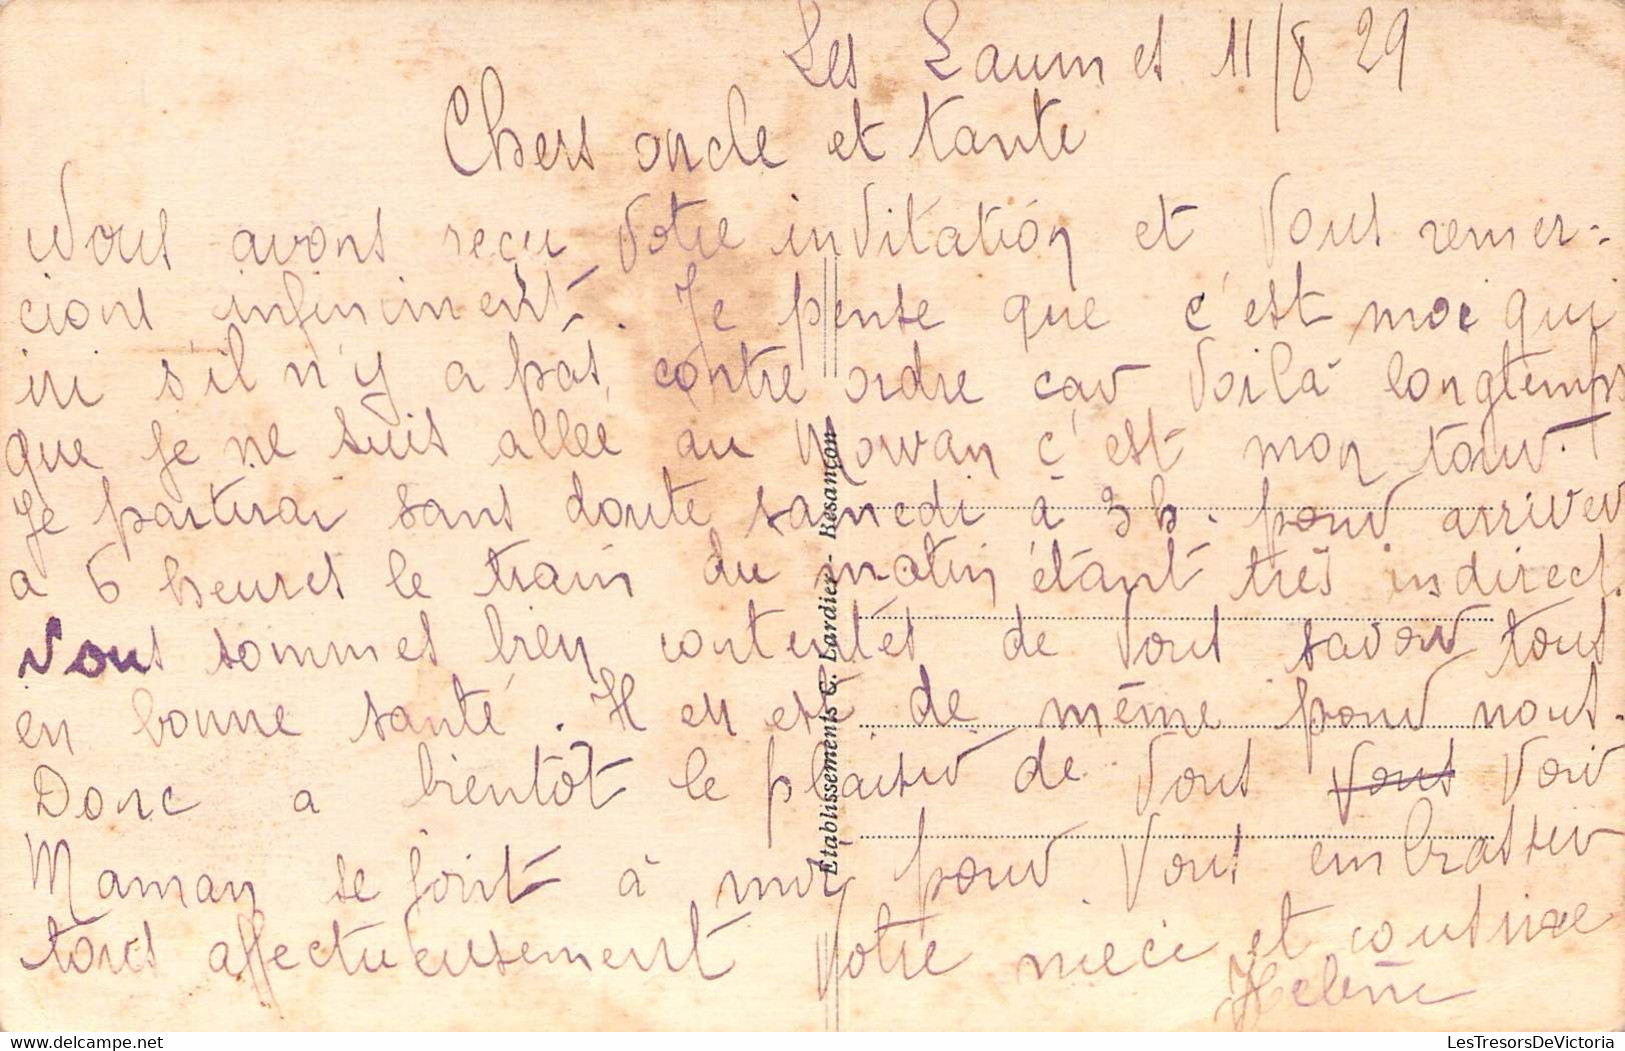 Les Laumes 11/8 29
Chers oncle et tante
Nous avons reçu votre invitation et vous remer-
cions infiniment. Je pense que c'est moi qui
iri s'il n'y a pas contre ordre car voilà longtemps
que je ne suis allée au Morvan c'est mon tour.
Je partirai sans doute samedi à 3 h. pour arriver
a 6 heures le train du matin étant très indirect.
Nous sommes bien contentes de vous savoir tous
en bonne santé. Il en est de même pour nous.
Donc a bientôt le plaisir de vous vous voir
Maman se joint à moi pour vous embrasser
tous affectueusement votre niece et cousine
Helène
Etablissements C. Lardier - Besançon
LesTresorsDeVictoria